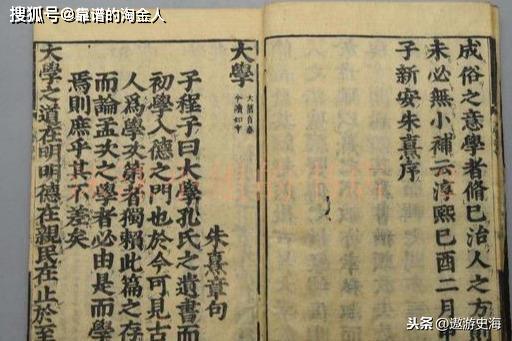 搜狐号@靠谱的淘金人
成俗之意學者脩已治人之方則
未必無小補云淳熙已酉二月
子新安朱熹序
大學
大舊音泰
今讀如字
朱熹章句
子程子曰大學孔氏之遺書而
初學入德之門也於今可見古
人爲學次第者獨賴此篇之存
而論孟次之學者必由是而學
焉則庶乎其不差矣
大學之道在明明德在親民在止於至
头条 @遨游史海